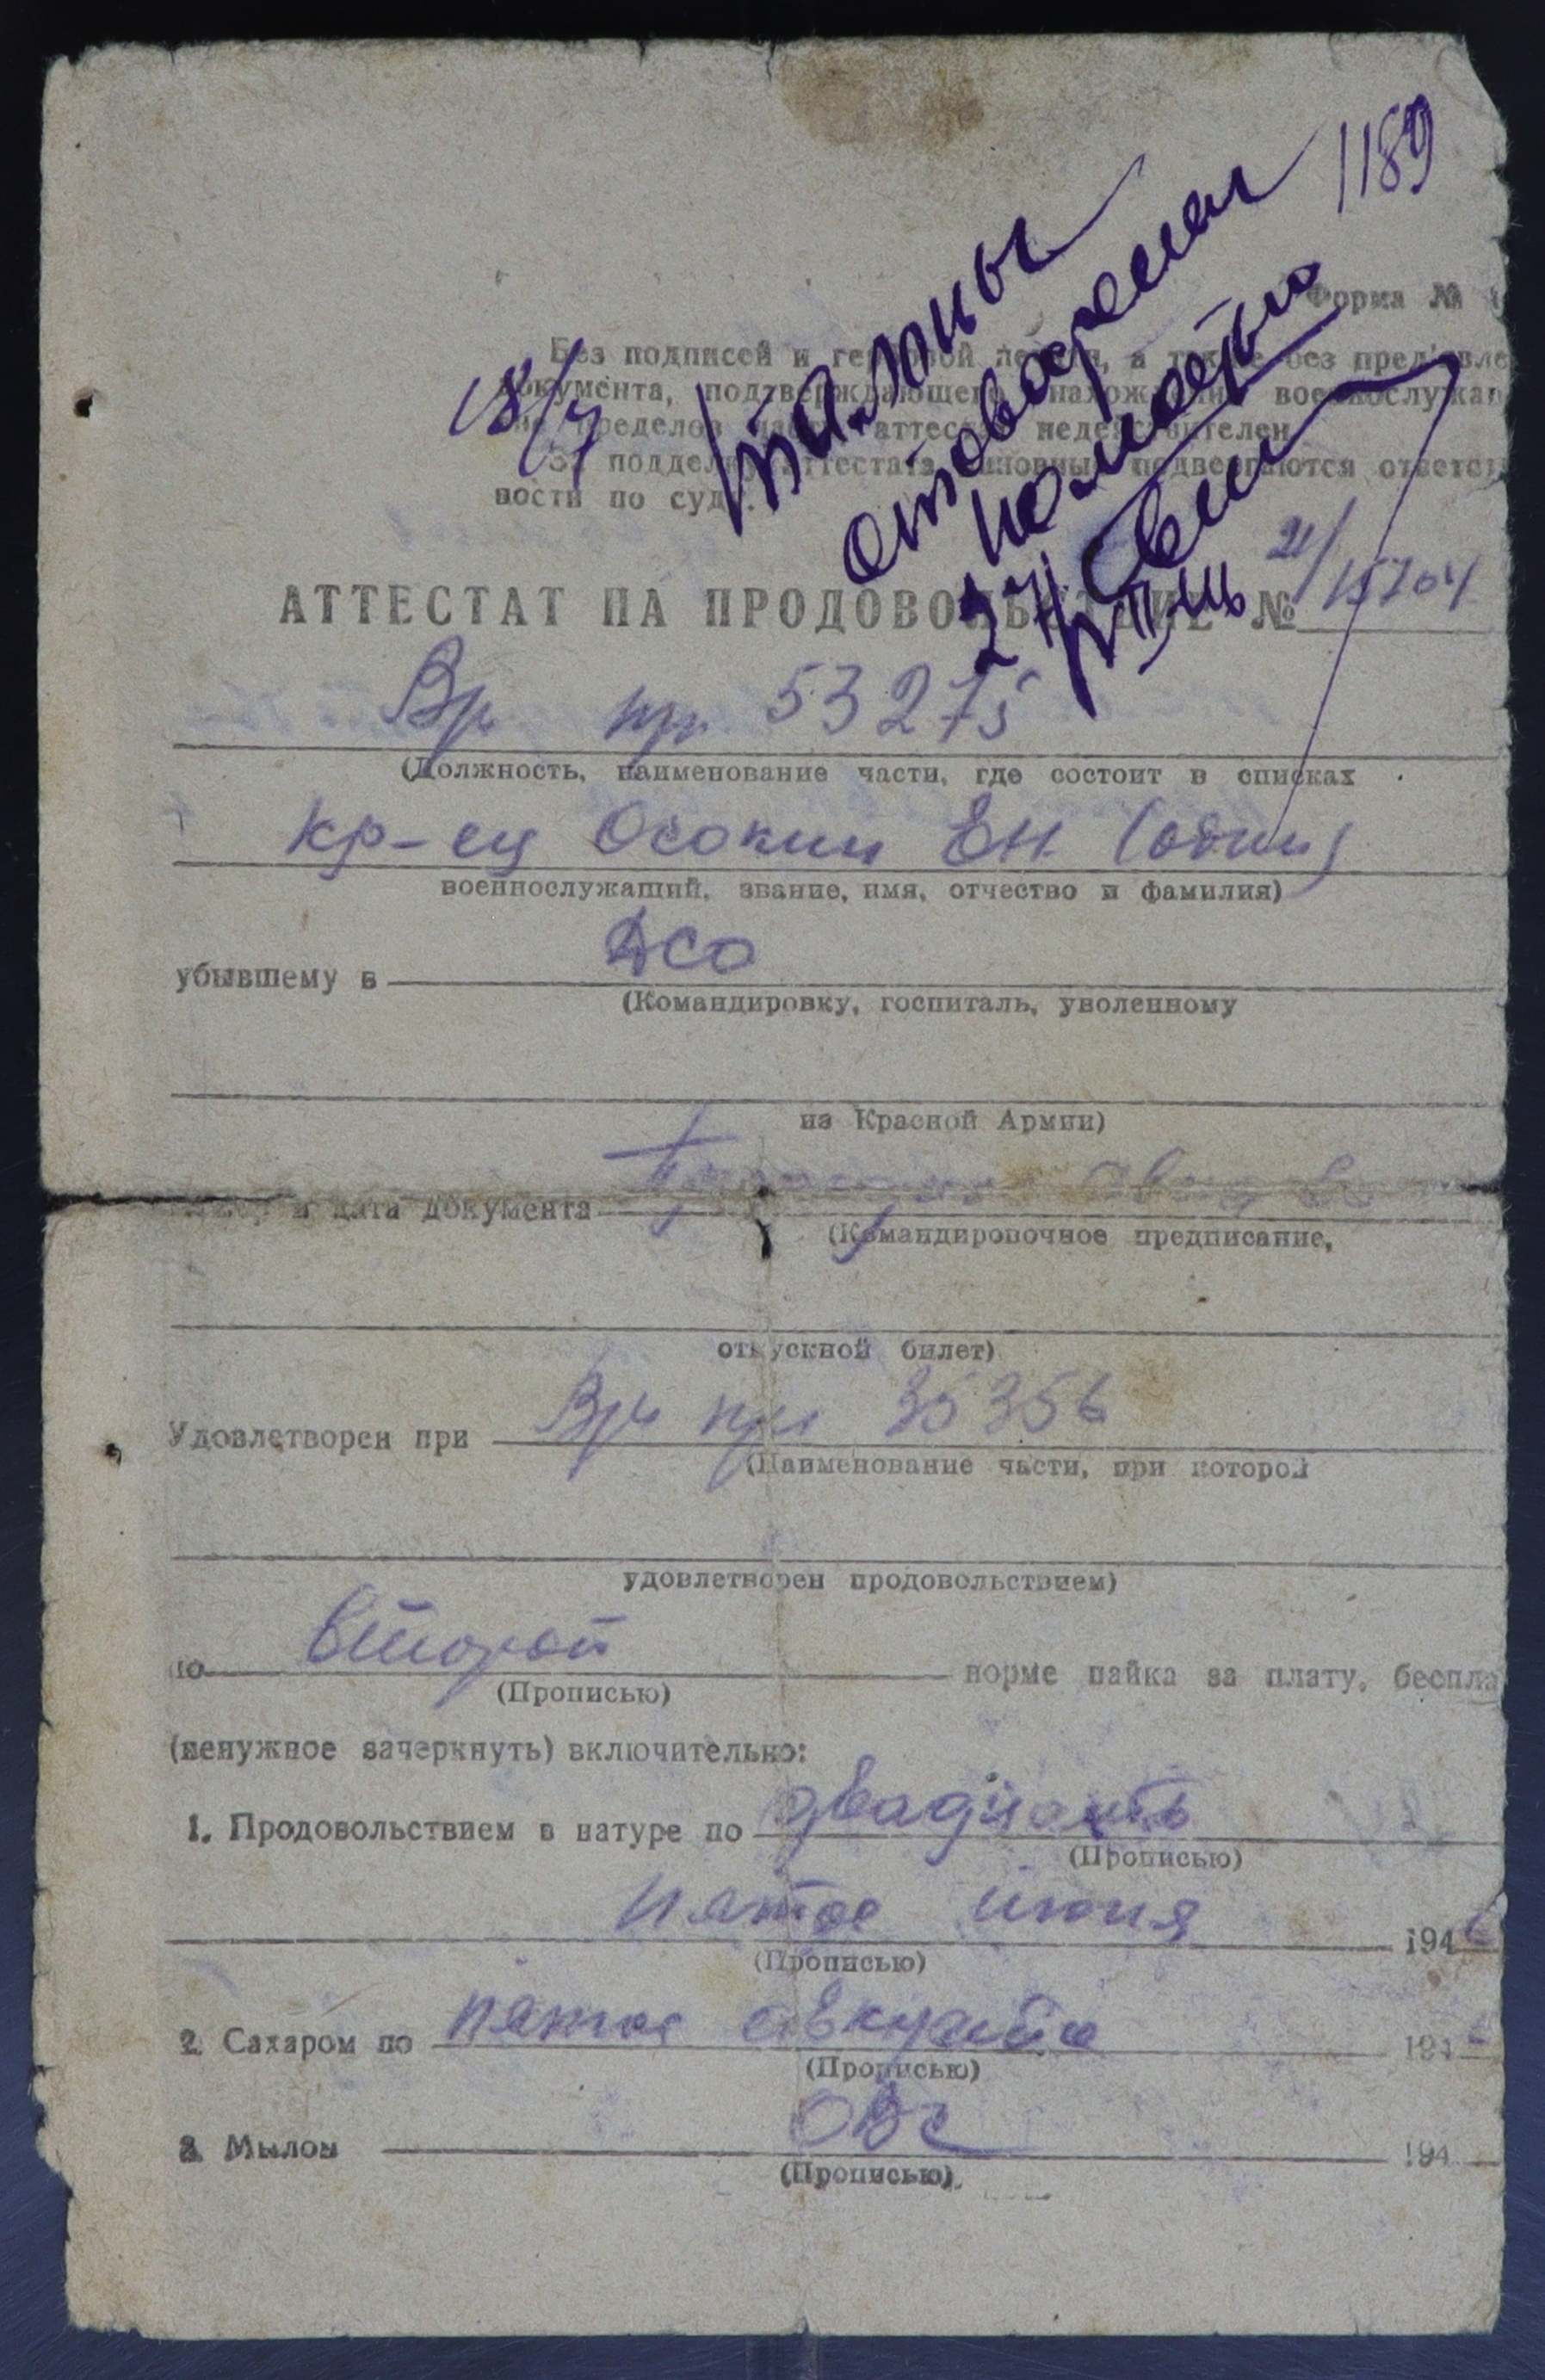 1189
Талоны
отоварены
полностью
Форма №
Без подписей и гербовой печати, а также без пред'явле
документа, подтверждающего нахождение военнослужащ
вне пределов части, аттестат недействителен.
За подделку аттестата виновные подвергаются ответст
вости по суду.
18/7
27/
АТТЕСТАТ НА ПРОДОВОЛЬСТВИЕ № 21/15704
Вр пр 53275
(Должность, наименование части, где состоит в списках
кр-ец Осокин ЕН (один)
военнослужащий, звание, имя, отчество и фамилия)
убывшему в ДСО
(Командировку, госпиталь, уволенному
из Красной Армии)
и дата документа
(Командировочное предписание,
отпускной билет)
Удовлетворен при Врч при 35356
(Наименование части, при которой
удовлетворен продовольствием)
по второй норме пайка за плату, беспла
(Прописью)
(ненужное зачеркнуть) включительно:
1. Продовольствием в натуре по двадцать
(Прописью)
пятое июня 1946
(Прописью)
2. Сахаром по пятое 194
(Прописью)
3. Мылом 194
(Прописью)